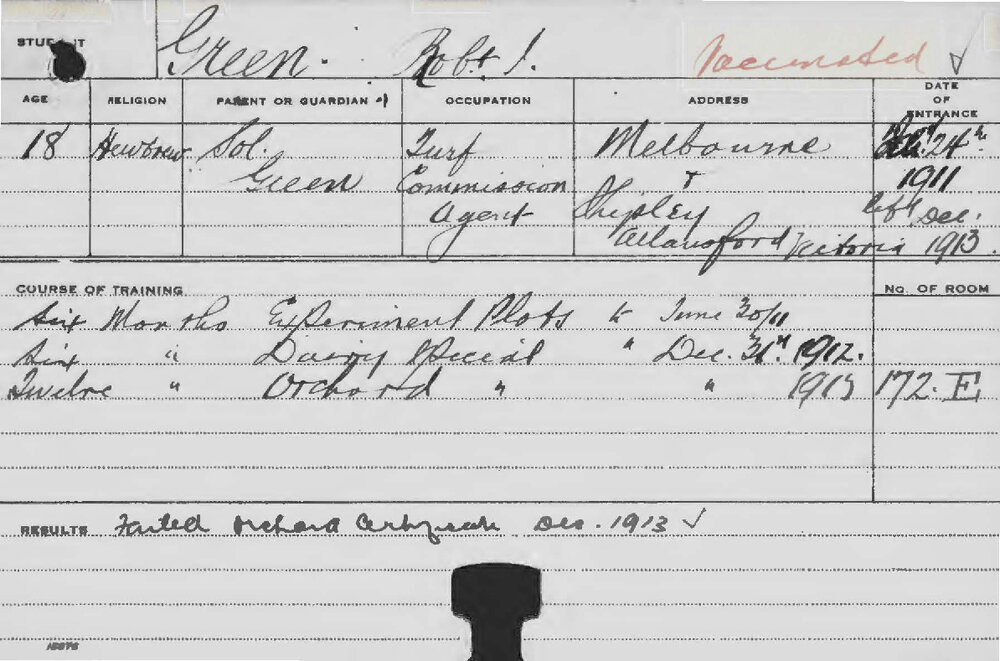 STUDENT Green. Robt I. Vaccinated ✓
AGE RELIGION PARENT OR GUARDIAN OCCUPATION ADDRESS DATE OF ENTRANCE
18 Hewbrew Sol. Turf Melbourne 24th
Green Commission 1911
Agent Shipley left Dec.
Allansford Victoria 1913.
COURSE OF TRAINING No. OF ROOM
Six Months Experiment Plots to June 30/11
Six " Dairy Special " Dec. 31st 1912.
Twelve " Orchard " " 1913 172. E
RESULTS Failed Orchard Certificate Dec. 1913 ✓